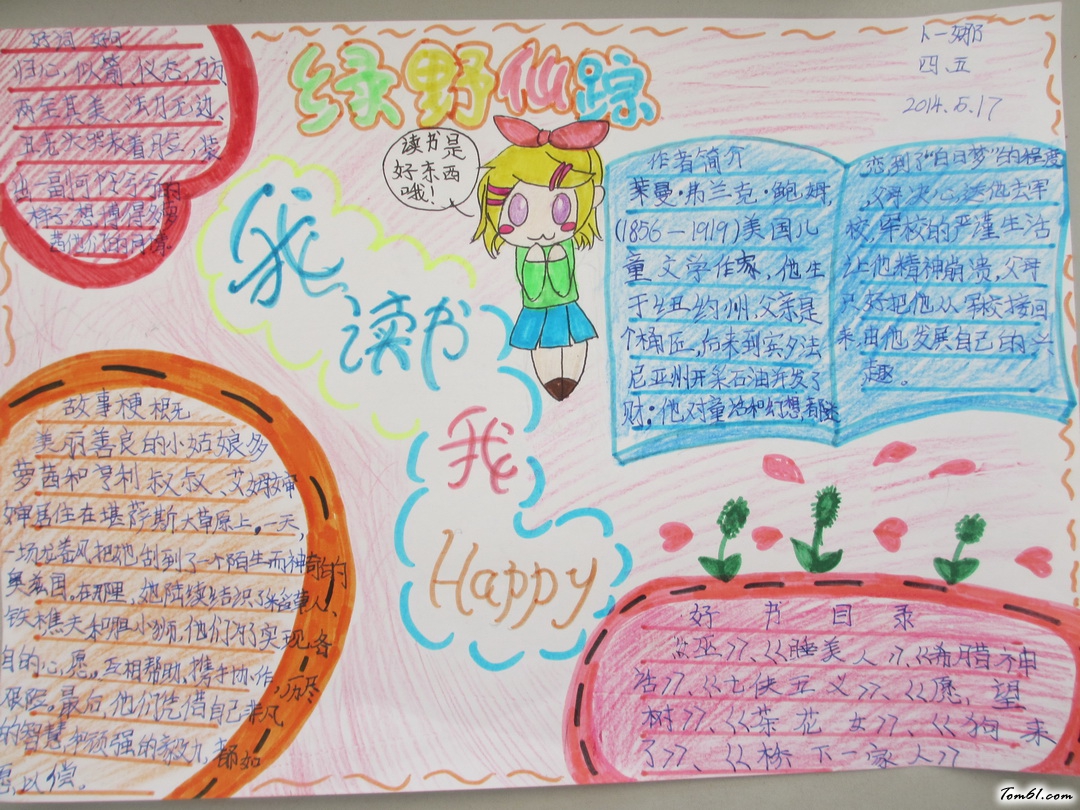 绿野仙踪
卜一娜
四、五
2014.5.17
好词 好句
归心似箭、仪态万方、
两全其美、法力无边、
读书是
好东西
哦！
我
读书
我
Happy
作者简介
莱曼·弗兰克·鲍姆，
(1856—1919)美国儿
童文学作家，他生
于纽约州，父亲是
个桶匠，后来到宾夕法
尼亚州开采石油并发了
财；他对童话和幻想，都迷
恋到了“白日梦”的程度
，父母决心送他去军
校，军校的严谨生活
让他精神崩溃，父母
只好把他从军校接回
来，由他发展自己的兴
趣。
故事梗概
美丽善良的小姑娘多
萝茜和亨利叔叔、艾姆婶
婶居住在堪萨斯大草原上。一天，
一场龙卷风把她刮到了一个陌生而神奇的
奥兹国，在那里，她陆续结识了稻草人、
铁樵夫和胆小狮，他们为了实现各
自的心愿，互相帮助，携手协作，历尽
艰险。最后，他们凭借自己非凡
的智慧和顽强的毅力，都如
愿以偿。
好书目录
《巫》、《睡美人》、《希腊神
话》、《七侠五义》、《愿望
树》、《茶花女》、《狗来
了》、《桥下一家人》
Tom61.com